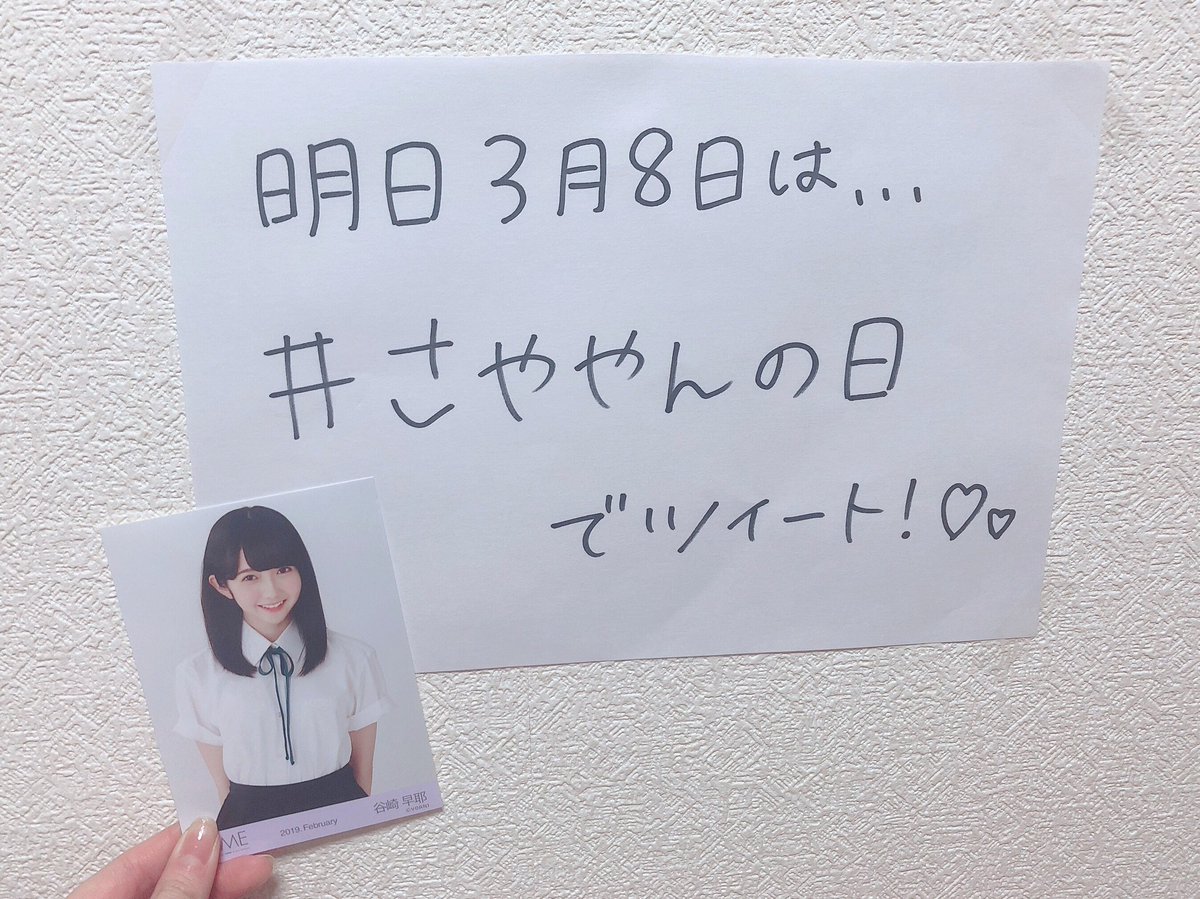 明日3月8日は...
#さややんの日
でツイート!♡♡
谷崎 早耶
2019. February
ME